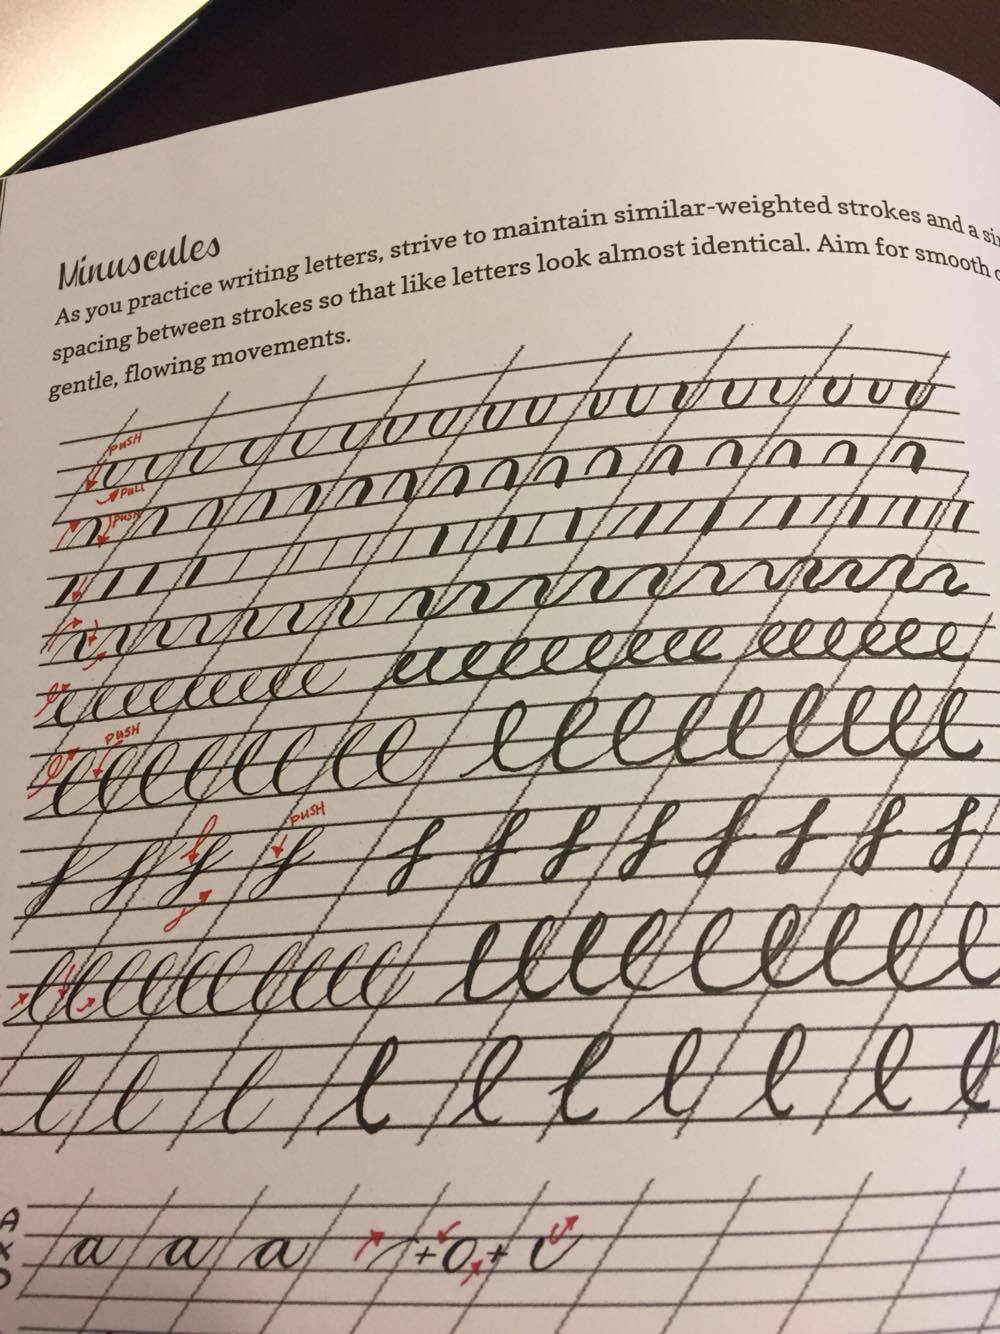 Minuscules
As you practice writing letters, strive to maintain similar-weighted strokes and a
spacing between strokes so that like letters look almost identical. Aim for smooth
gentle, flowing movements.
PUSH
PULL
PUSH
PUSH
PUSH
f f f f f f f f f f f f
l l l l l l l l l l
A
a a a + o +